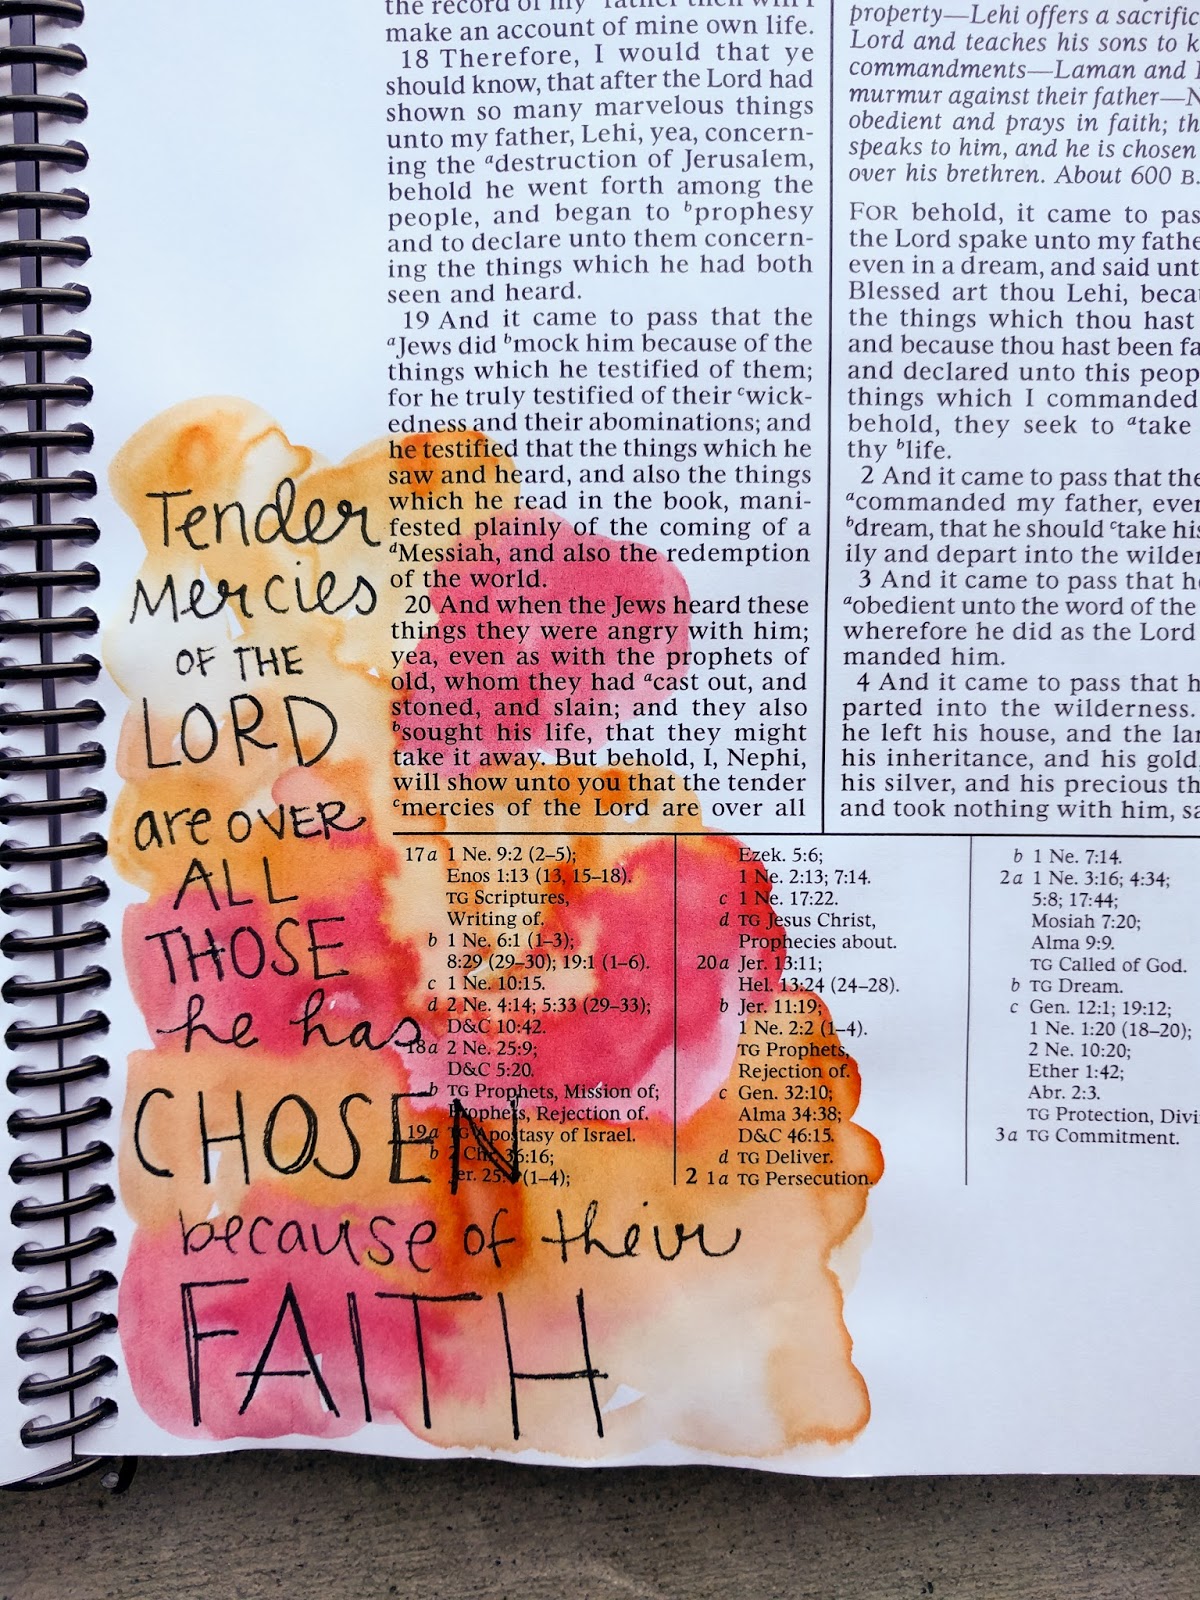 the record of my father then will I
make an account of mine own life.
18 Therefore, I would that ye
should know, that after the Lord had
shown so many marvelous things
unto my father, Lehi, yea, concern-
ing the adestruction of Jerusalem,
behold he went forth among the
people, and began to bprophesy
and to declare unto them concern-
ing the things which he had both
seen and heard.
19 And it came to pass that the
aJews did bmock him because of the
things which he testified of them;
for he truly testified of their cwick-
edness and their abominations; and
he testified that the things which he
saw and heard, and also the things
which he read in the book, mani-
fested plainly of the coming of a
dMessiah, and also the redemption
of the world.
20 And when the Jews heard these
things they were angry with him;
yea, even as with the prophets of
old, whom they had acast out, and
stoned, and slain; and they also
bsought his life, that they might
take it away. But behold, I, Nephi,
will show unto you that the tender
cmercies of the Lord are over all
property—Lehi offers a sacrific
Lord and teaches his sons to k
commandments—Laman and
murmur against their father—N
obedient and prays in faith; th
speaks to him, and he is chosen
over his brethren. About 600 B.
FOR behold, it came to pas
the Lord spake unto my fathe
even in a dream, and said unt
Blessed art thou Lehi, beca
the things which thou hast
and because thou hast been fa
and declared unto this peop
things which I commanded
behold, they seek to atake
thy blife.
2 And it came to pass that the
acommanded my father, ever
bdream, that he should ctake his
ily and depart into the wilder
3 And it came to pass that he
aobedient unto the word of the
wherefore he did as the Lord
manded him.
4 And it came to pass that h
parted into the wilderness.
he left his house, and the lan
his inheritance, and his gold,
his silver, and his precious th
and took nothing with him, sa
Tender
Mercies
OF THE
LORD
are OVER
ALL
THOSE
he has
CHOSEN
because of their
FAITH
17a 1 Ne. 9:2 (2–5);
Enos 1:13 (13, 15–18).
TG Scriptures,
Writing of.
b 1 Ne. 6:1 (1–3);
8:29 (29–30); 19:1 (1–6).
c 1 Ne. 10:15.
d 2 Ne. 4:14; 5:33 (29–33);
D&C 10:42.
18a 2 Ne. 25:9;
D&C 5:20.
b TG Prophets, Mission of;
Prophets, Rejection of.
19a TG Apostasy of Israel.
b 2 Chr. 36:16;
Jer. (1–4);
Ezek. 5:6;
1 Ne. 2:13; 7:14.
c 1 Ne. 17:22.
d TG Jesus Christ,
Prophecies about.
20a Jer. 13:11;
Hel. 13:24 (24–28).
b Jer. 11:19;
1 Ne. 2:2 (1–4).
TG Prophets,
Rejection of.
c Gen. 32:10;
Alma 34:38;
D&C 46:15.
d TG Deliver.
2 1a TG Persecution.
b 1 Ne. 7:14.
2a 1 Ne. 3:16; 4:34;
5:8; 17:44;
Mosiah 7:20;
Alma 9:9.
TG Called of God.
b TG Dream.
c Gen. 12:1; 19:12;
1 Ne. 1:20 (18–20);
2 Ne. 10:20;
Ether 1:42;
Abr. 2:3.
TG Protection, Divi
3a TG Commitment.